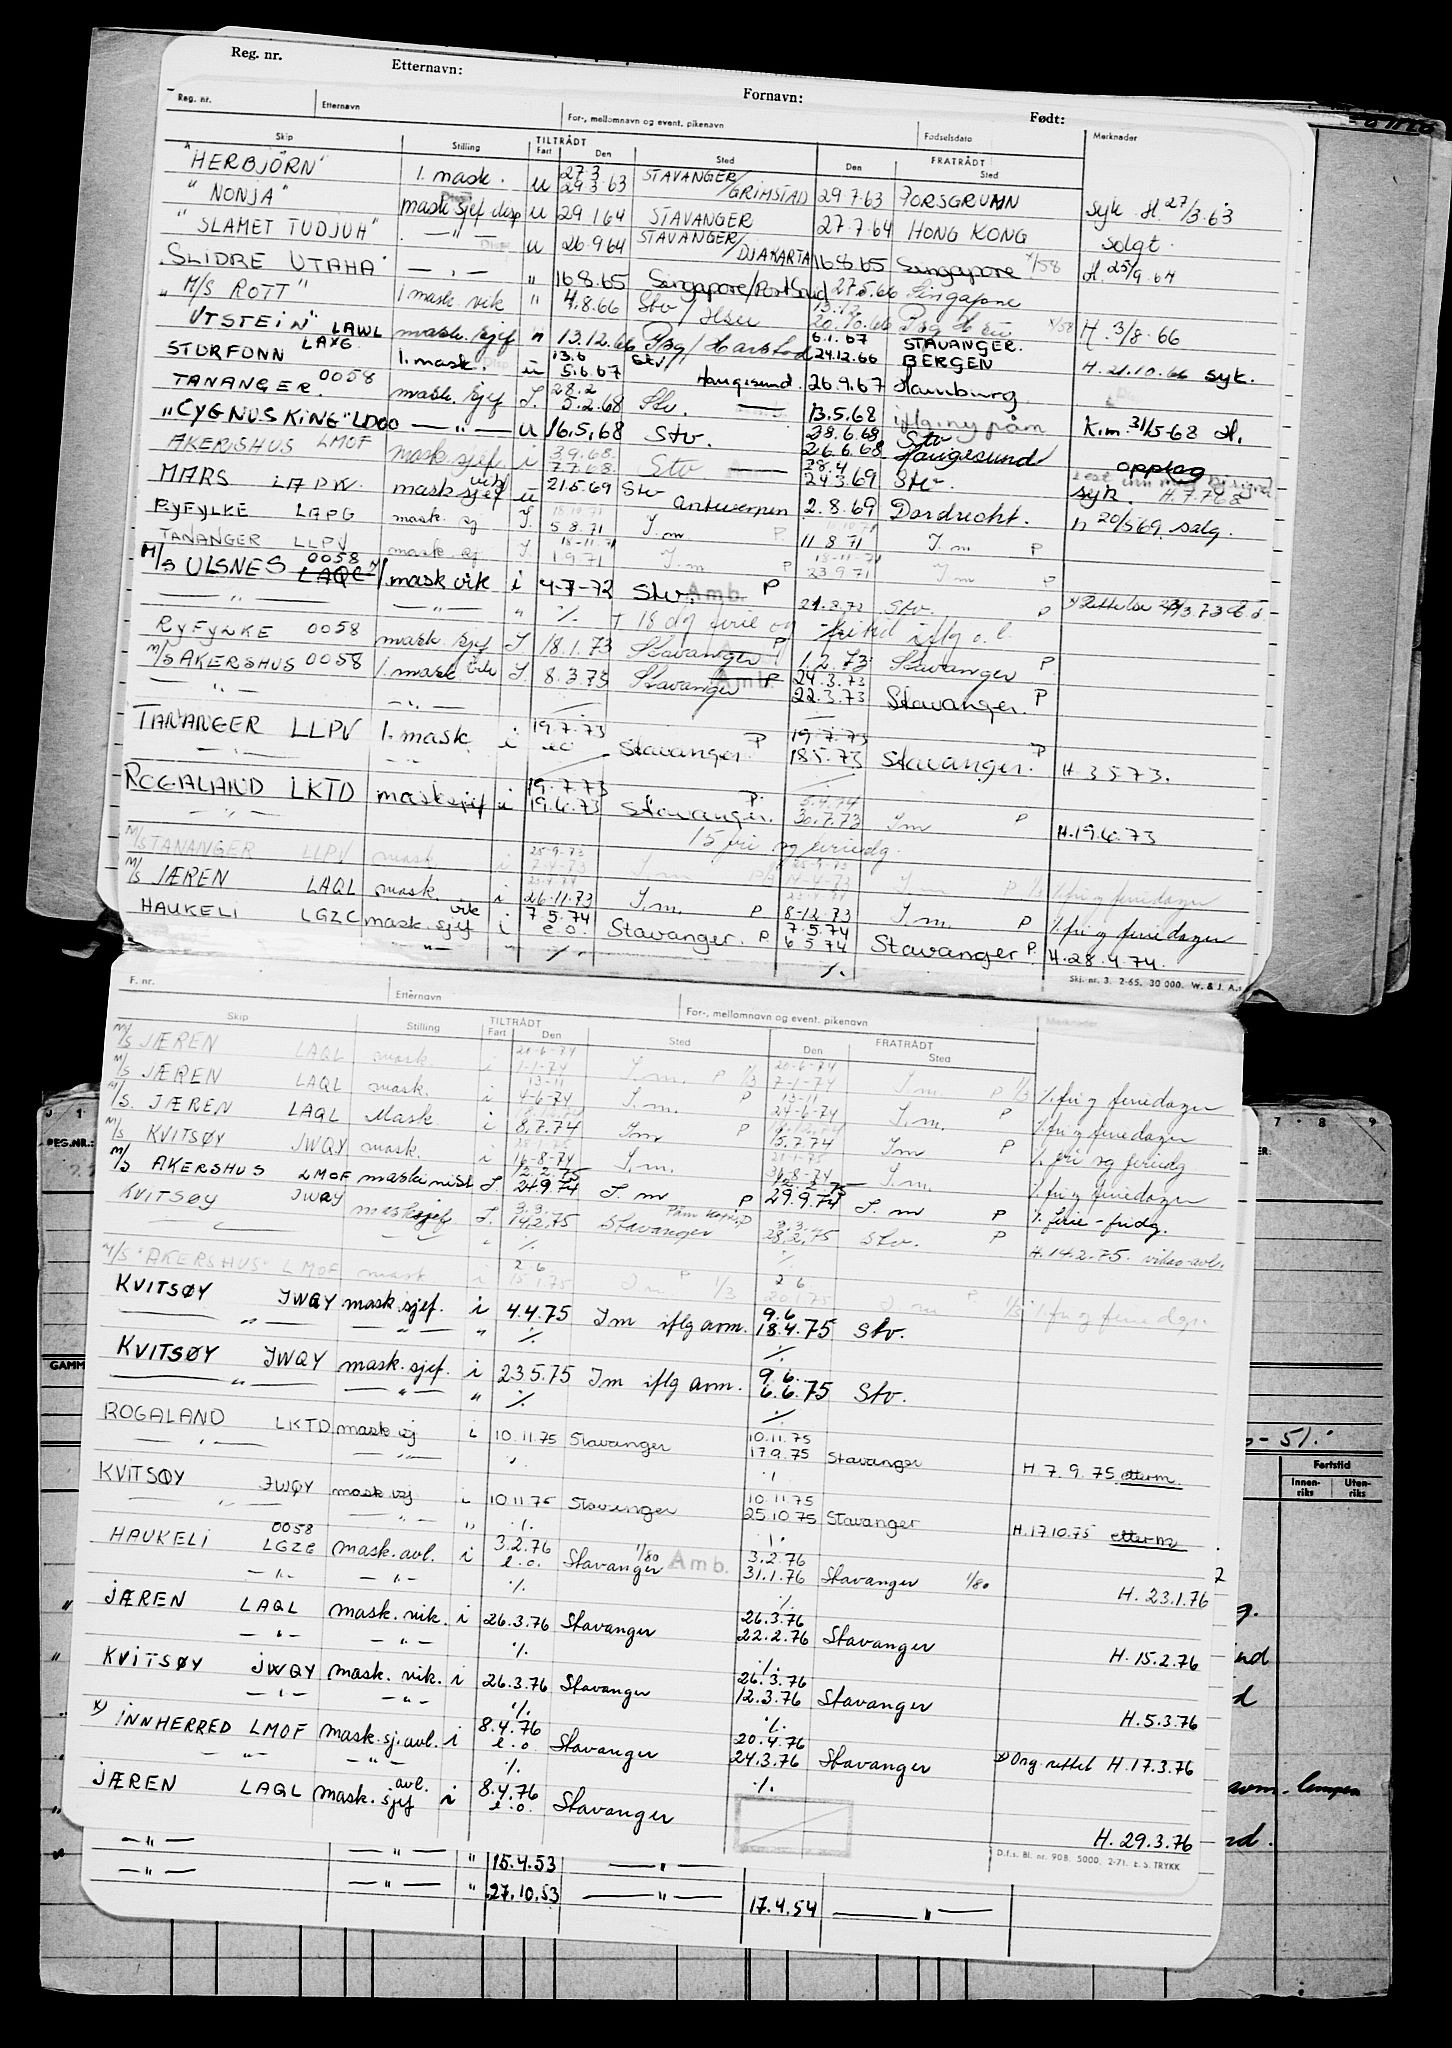 Reg. nr. Etternavn: Fornavn: Født:
Reg. nr. Etternavn For-, mellomnavn og event. pikenavn Fødselsdato Merknader
Skip Stilling TILTRÅDT Fart Den Sted Den FRATRÅDT Sted
"HERBJÖRN" 1. mask. u 27.3 29.3.63 STAVANGER/GRIMSTAD 29.7.63 PORSGRUNN syk H. 27/3.63
"NONJA" mask sjef disp u 29.1.64 STAVANGER 27.7.64 HONG KONG solgt.
"SLAMET TUDJUH" — " — u 26.9.64 STAVANGER/DJAKARTA 16.8.65 Singapore H. 25/9.64
SLIDRE UTAHA — " — " 16.8.65 Singapore/Port Said 27.5.66 Singapore
"M/S ROTT" 1 mask vik " 4.8.66 Stv / 20.10.66 H. 3/8.66
UTSTEIN" LAWL mask. sjef " 13.12.66 Bg/Harstad 6.1.67 STAVANGER. 24.12.66 BERGEN H. 21.10.66 syk.
STORFONN LAXG 1. mask. u 13.6 5.6.67 Stv Haugesund. 26.9.67 Hamburg
TANANGER. 0058 mask. sjef I. 28.2 5.2.68 Stv. — 13.5.68 iflg ny påm K.m. 31/5-68 H.
"CYGNUS KING" LDOO — " — u 16.5.68 Stv. 28.6.68 Stv 26.6.68 Haugesund opplag
AKERSHUS LMOF mask sjef i 3.9.68. 7.7.68. Stv — 28.4 24.3.69 Stv. syk. H.7.7.68
MARS LAPW mask sjef vik u 21.5.69 Stv Antwerpen 2.8.69 Dordrecht. H 20/5 69 salg.
RYFYLKE LAPG mask. sj I. 5.8.71 I.m P 11.8.71 I.m P
TANANGER LLPV mask. sj I. 18-11-71 1.9.71 I.m P 18-11-71 23.9.71 I.m P
M/S ULSNES 0058 LAQC 1 mask vik i 4-7-72 Stv. Amb. P 21.8.72 Stv. P
— " — — " — " ./. + 18 dg ferie og fritid iflg o.l.
RYFYLKE 0058 mask. sjef I 18.1.73 Stavanger P 1.2.73 Stavanger P
M/S AKERSHUS 0058 1. mask vik I. 8.3.75 Stavanger Amb. P 24.3.73 22.3.73 Stavanger. P
— " — — " —
TANANGER LLPV 1. mask i 19.7.73 e.o Stavanger. P 19.7.73 18.5.73 Stavanger. P H. 3 5 73.
— " — — " —
ROGALAND LKTD mask sjef i 19.7.73 19.6.73 Stavanger. P. 5.4.74 30.7.73 I m P H.19.6.73
— " — 15 fri og feriedg.
M/S TANANGER LLPV mask. i 25.9.73 7-4-73 I.m 25.9.73 14-4-73 I.m P ./. fri og feriedager
M/S JÆREN LAQL mask. i 26.11.73 I.m. P 8-12.73 I.m. P ./. fri og feriedager
HAUKELI LGZC mask. sjef vik i 7.5.74 e.o. Stavanger. P 7.5.74 6 5 74 Stavanger P. H. 28.4.74.
— " — " ./. ./.
Ski. nr. 3. 2-65. 30 000. W. & J. A.s
F. nr. Etternavn For-, mellomnavn og event. pikenavn Merknader
Skip Stilling TILTRÅDT Fart Den Sted Den FRATRÅDT Sted
M/S JÆREN LAQL mask. i 20-6-74 1-1-74 I.m. P 1/3 20-6-74 7-1-74 I.m. P 1/3 ./. fri og feriedager
M/S JÆREN LAQL mask. i 13-11 4-6-74 I.m. P 13-11 24-6-74 I.m. P ./. fri og feriedager
M/S. JÆREN LAQL Mask i 8.7.74 Im P 15.7.74 Im P ./. fri og feriedg
M/S KVITSØY JWQY mask. i 16-8-74 I.m. 31-8-74 I.m. ./. fri og feriedager
M/S AKERSHUS LMOF maskinist I 12.2.75 24.9.74 I.m P 12.2.75 29.9.74 I.m P ./. ferie - fridg.
KVITSØY JWQY mask sjef I. 3.3. 14.2.75 Stavanger 3.3. 28.2.75 Stv. P H. 14.2.75. vikar-avl.
— " — " ./. ./.
M/S "AKERSHUS" LMOF mask. i 2.6 I.m. P 1/3 2.6 20.1.75 I.m P 1/3 ./. fri og feriedgr.
KVITSØY JWQY mask. sjef. i 4.4.75 Im iflg avm. 9.6 18.4.75 Stv.
— " — — " — " ./. ./.
KVITSØY JWQY mask. sjef. i 23.5.75 Im iflg avm. 9.6. 6.6.75 Stv.
— " — — " — " ./. ./.
ROGALAND LKTD mask sj i 10.11.75 Stavanger 10.11.75 17.9.75 Stavanger H. 7. 9. 75 etterm.
— " — — " — ./. ./.
KVITSØY JWQY mask. sj i 10.11.75 Stavanger 10.11.75 25.10.75 Stavanger H.17.10.75 etterm
— " — — " — " ./. ./.
HAUKELI 0058 LGZC mask. avl. i 3.2.76 e.o. Stavanger 1/80 Amb. 3.2.76 31.1.76 Stavanger 1/80 H. 23.1.76
— " — — " — ./. ./.
JÆREN LAQL mask. vik. i 26.3.76 Stavanger 26.3.76 22.2.76 Stavanger H. 15.2.76
— " — — " — ./. ./.
KVITSØY JWQY mask. vik. i 26.3.76 Stavanger 26.3.76 12.3.76 Stavanger H. 5.3.76
— " — — " — ./. ./.
x) INNHERRED LMOF mask. sj. avl. i 8.4.76 e.o. Stavanger 20.4.76 24.3.76 Stavanger x) Org. rettet H. 17.3.76
— " — — " — ./. ./.
JÆREN LAQL mask. sjef avl. i 8.4.76 e.o. Stavanger H. 29.3.76
D.f.s. Bl. nr. 90B. 5000. 2-71. E.S. TRYKK
— " — — " — " 15.4.53 — " —
— " — — " — " 27.10.53 — " — 17.4.54 — " —
REG.NR.:
GAMM
7 8 9
- 51.
Fartstid
Innen-riks Uten-riks
avm. lempen